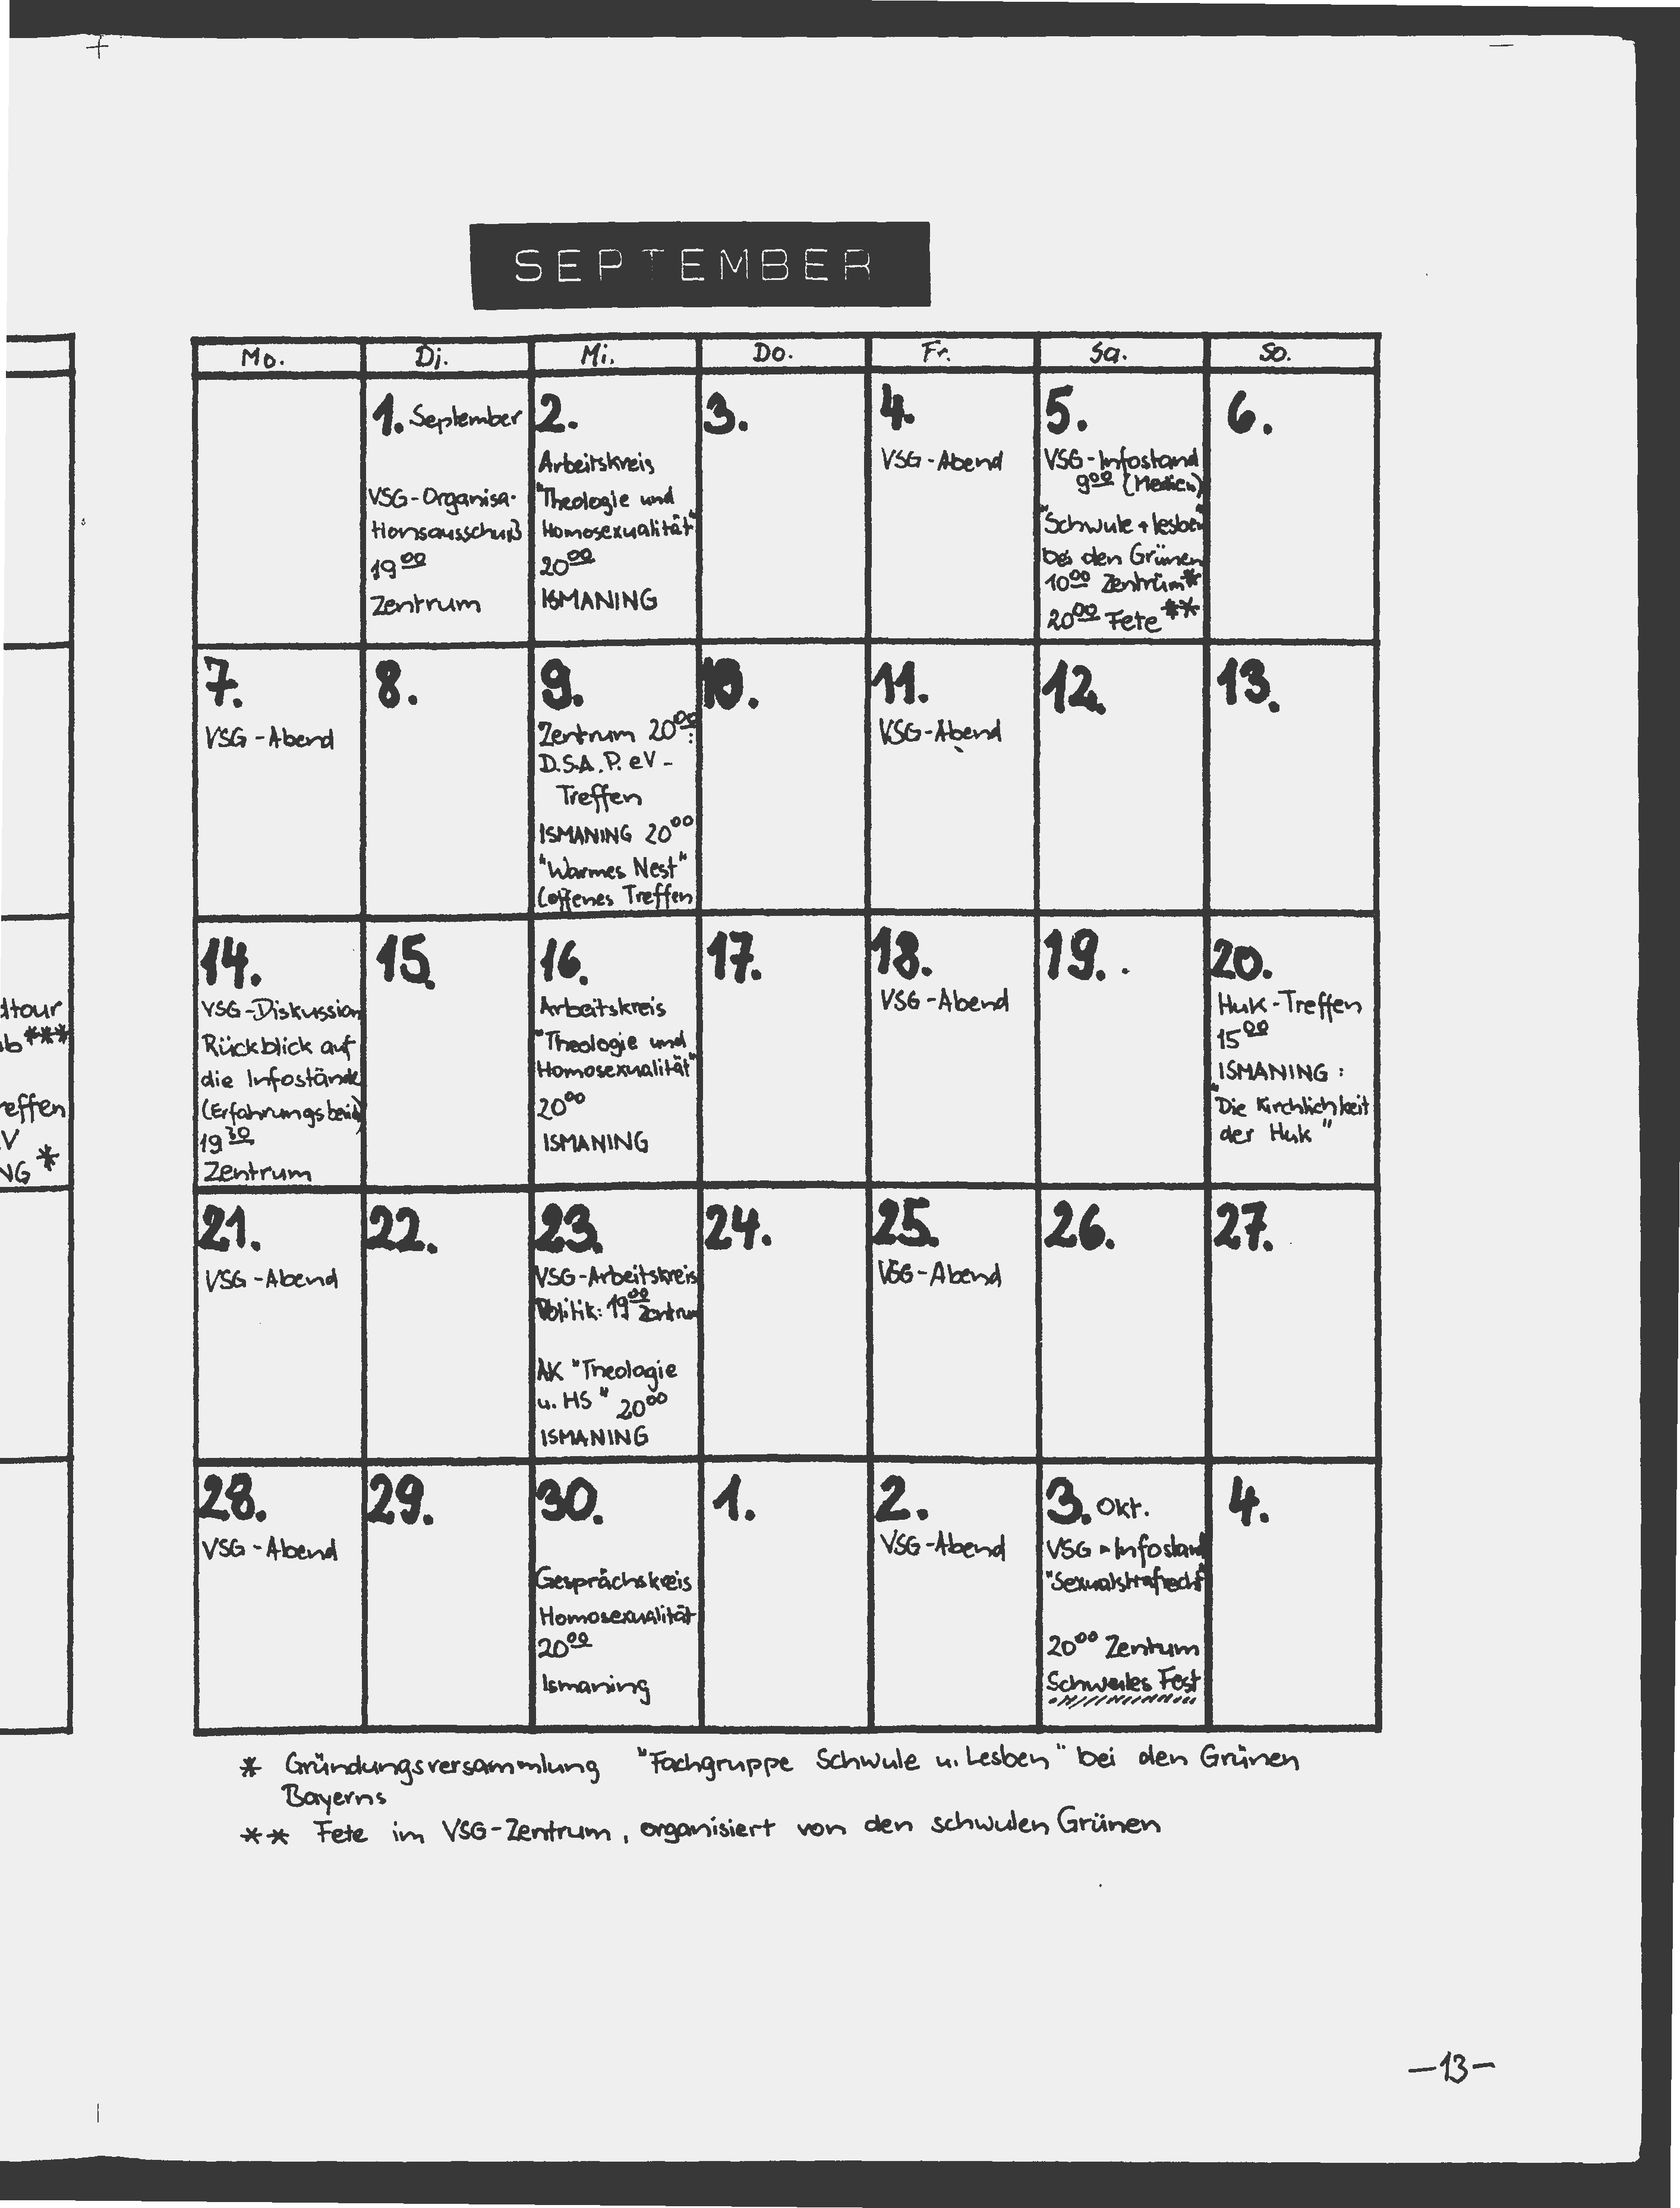 SEPTEMBER
Mo. Di. Mi. Do. Fr. Sa. So.
1. September
VSG-Organisa-
tionsausschuß
19 00
Zentrum
2.
Arbeitskreis
"Theologie und
Homosexualität"
20 00
ISMANING
3.
4.
VSG-Abend
5.
VSG-Infostand
9 00 (Medien)
"Schwule + lesben"
bei den Grünen
10 00 Zentrum*
20 00 Fete **
6.
7.
VSG-Abend
8.
9.
Zentrum 20 00:
D.S.A.P. eV-
Treffen
ISMANING 20 00
"Warmes Nest"
(offenes Treffen
10.
11.
VSG-Abend
12.
13.
ltour
b***
reffen
V
NG *
14.
VSG-Diskussion
Rückblick auf
die Infostände
19 30
Zentrum
15.
16.
Arbeitskreis
"Theologie und
Homosexualität"
20 00
ISMANING
17.
18.
VSG-Abend
19.
20.
Huk-Treffen
15 00
ISMANING:
"Die Kirchlichkeit
der Huk"
21.
VSG-Abend
22.
23.
VSG-Arbeitskreis
Politik: 19 00 Zentrum
AK "Theologie
u. HS" 20 00
ISMANING
24.
25.
VSG-Abend
26.
27.
28.
VSG-Abend
29.
30.
Gesprächskreis
Homosexualität
20 00
Ismaning
1.
2.
VSG-Abend
3. Okt.
VSG-Infostand
"Sexualstrafrecht"
20 00 Zentum
Schwules Fest
4.
* Gründungsversammlung "Fachgruppe Schwule u. Lesben" bei den Grünen
Bayerns
** Fete im VSG-Zentrum, organisiert von den schwulen Grünen
-13-